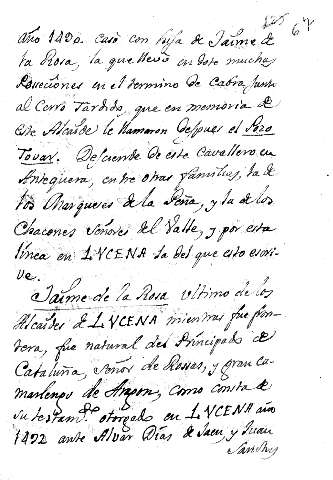 67
año 1490. casó con hija de Jaime de
la Rosa, la que llevó en dote muchas
posecciones en el termino de Cabra, junto
al Cerro Tardido, que en memoria de
este Alcalde le llamaron despues el Pozo
Tovar. Desciende de este Cavallero en
Antequera, entre otras familias, la de
los Marqueses de la Peña, y la de los
Chacones Señores del Valle, y por esta
linea en LVCENA la del que esto escri-
ve.
Jaime de la Rosa ultimo de los
Alcaides de LVCENA mientras fue fron-
tera, fue natural del Principado de
Cataluña, Señor de Rosas, y gran ca-
marlengo de Aragon, como consta de
su testam.to otorgado en LVCENA año
1492 ante Alvar Días de Jaen, y Juan
Sanches